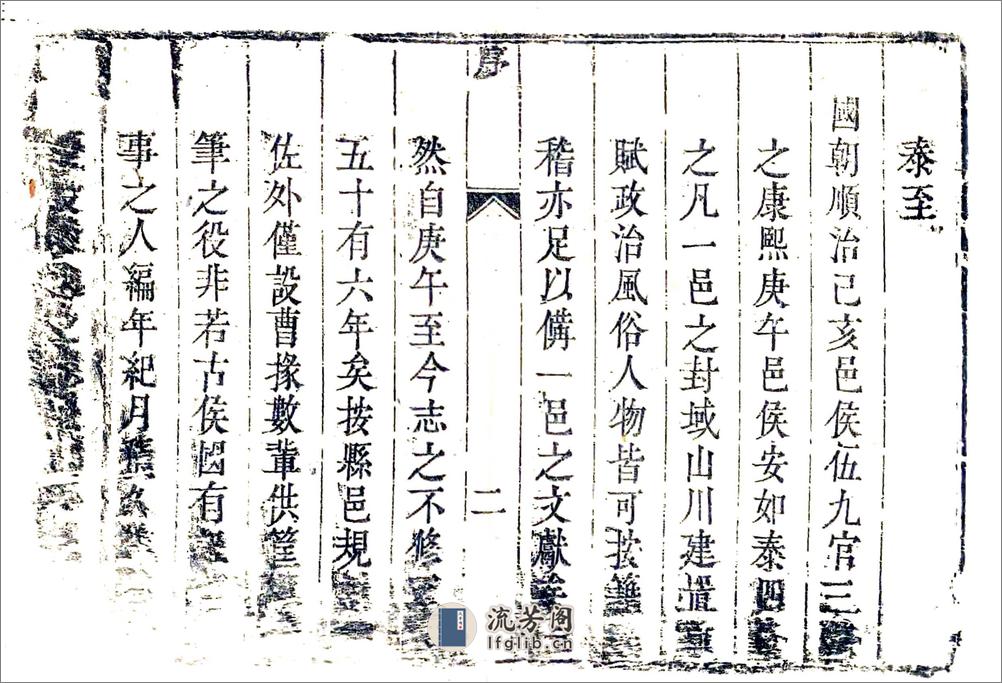 泰至
國朝順治己亥邑侯伍九官三
之康熙庚午邑侯安如泰四
之凡一邑之封域山川建置
賦政治風俗人物皆可按籍
稽亦足以備一邑之文獻
序
二
然自庚午至今志之不修
五十有六年矣按縣邑規
佐外僅設曹掾數輩供筐
筆之役非若古侯國有
事之人編年紀月
流芳阁
lfglib.cn